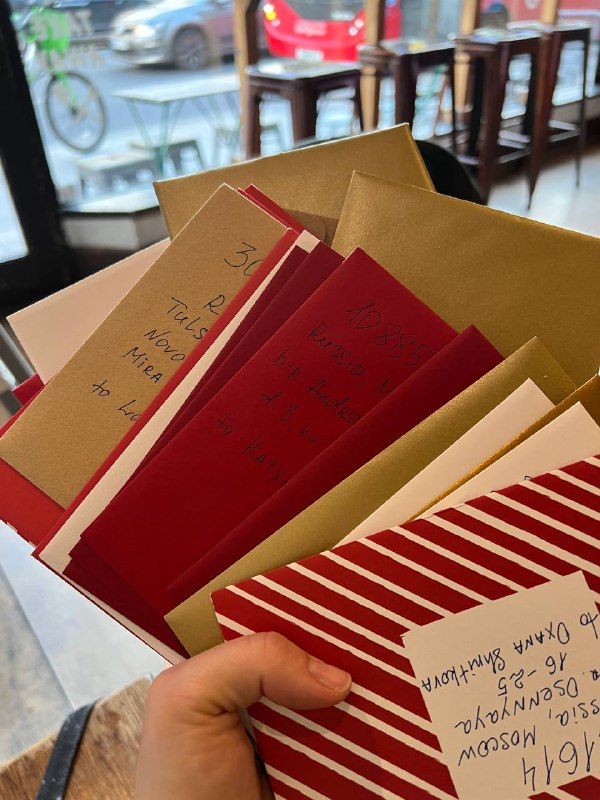 30
R
Tuls
Novo
Mira
to
10885
Russia,
b-r Andre
d. 3, kv
to Katy
1614
ssia, Moscow
Osennyaya
16-25
to Oxana Shnitkova